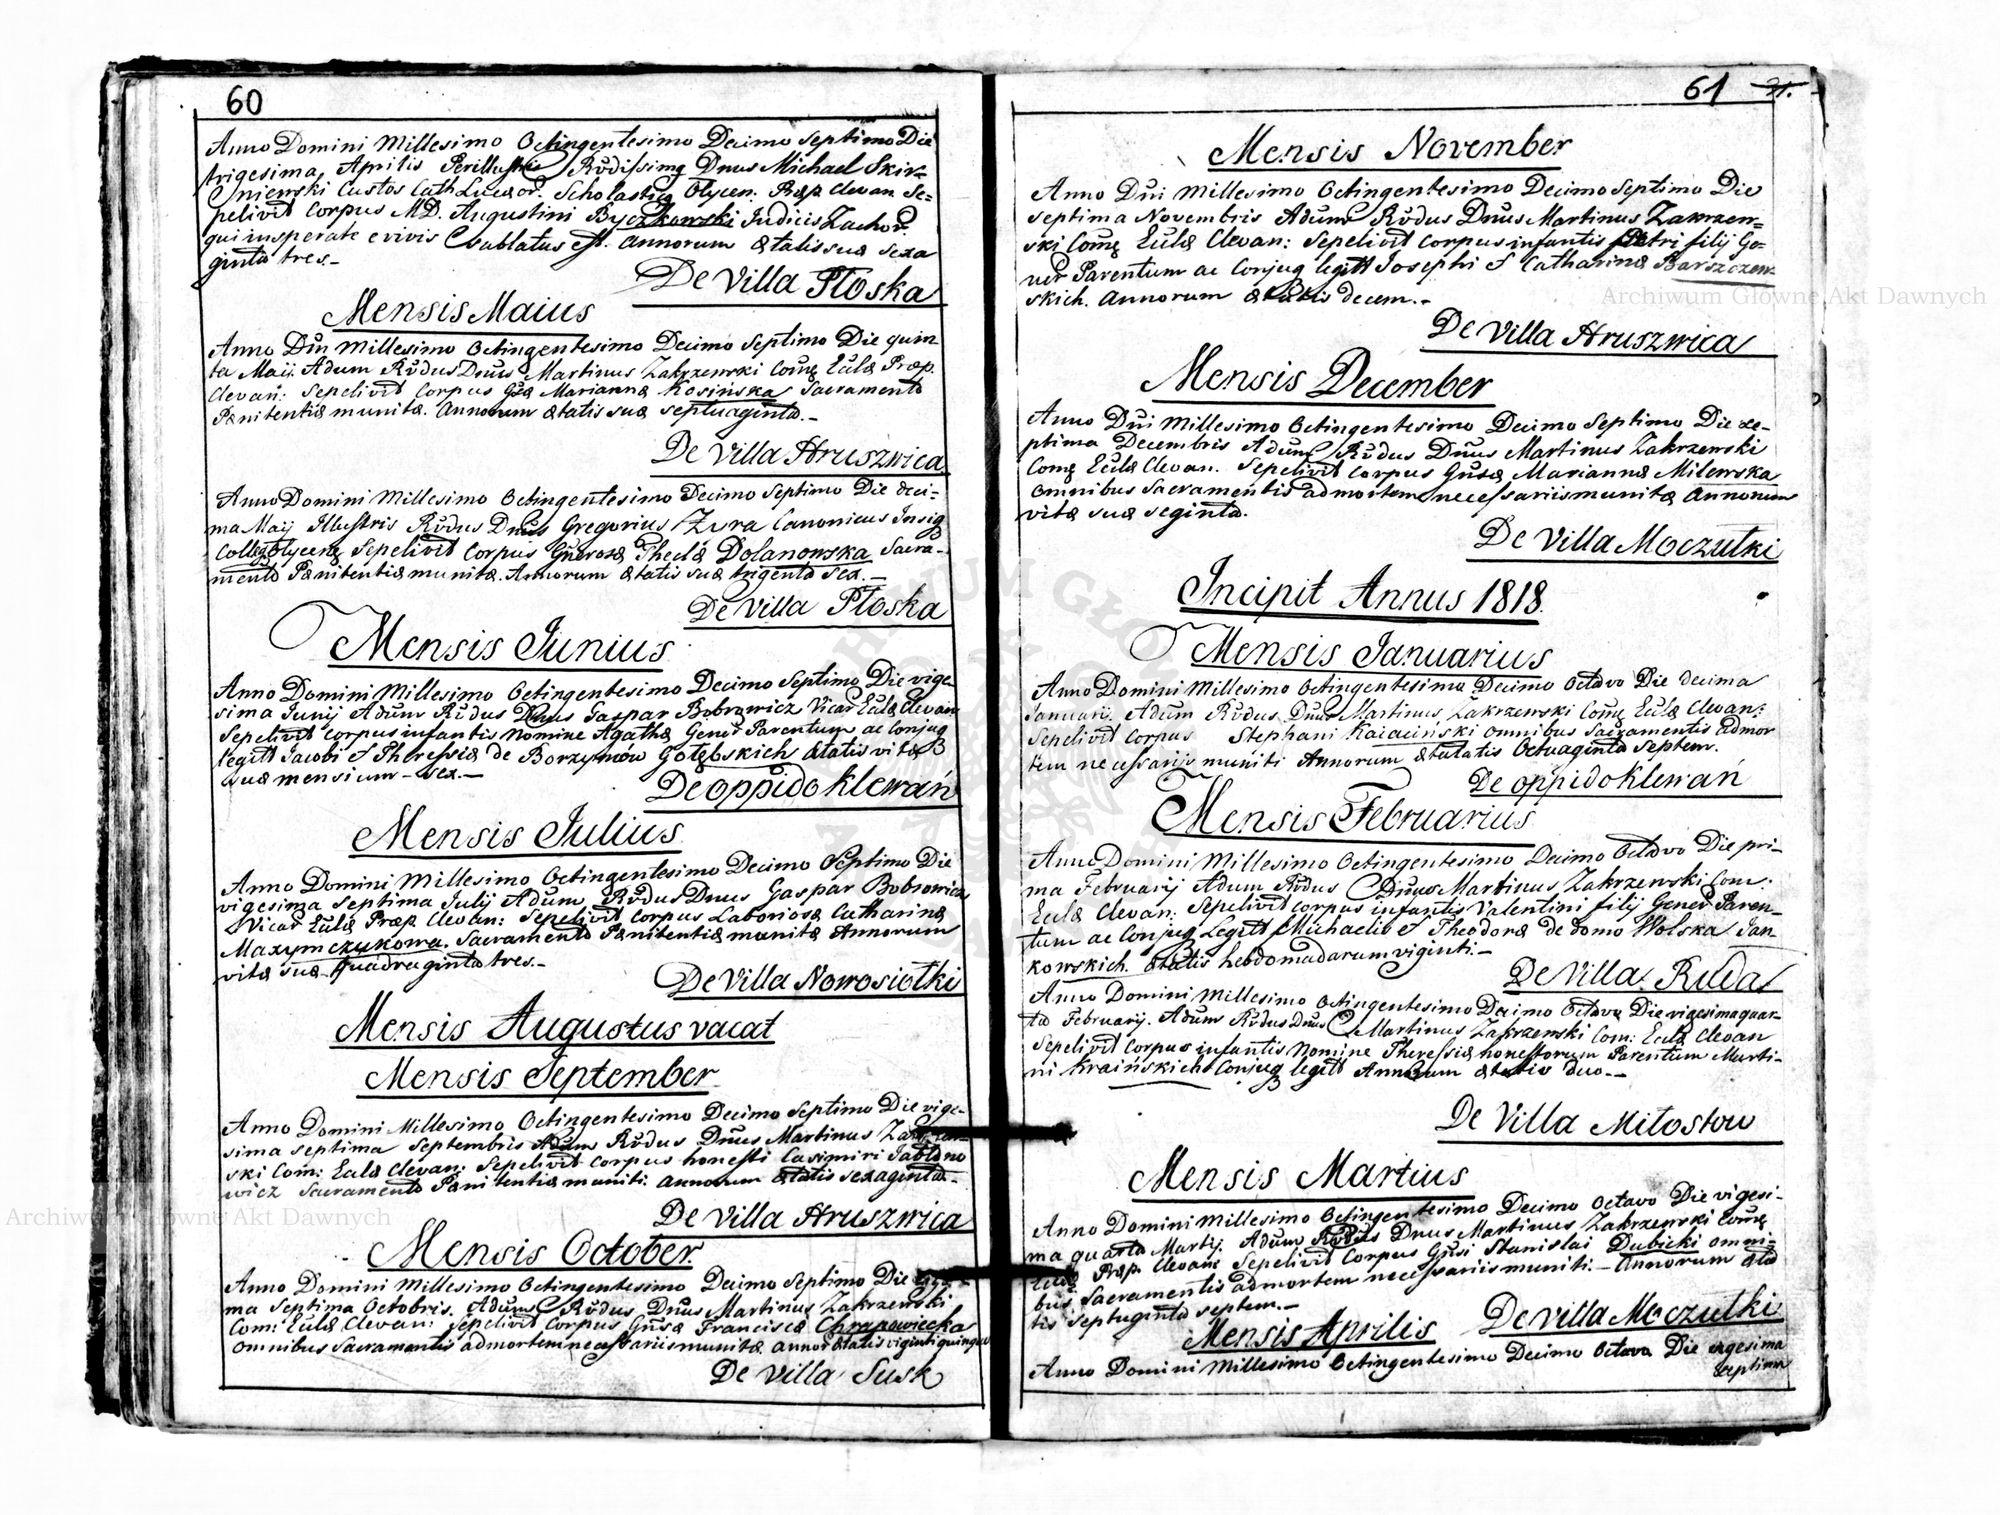 60
Anno Domini Millesimo Octingentesimo Decimo Septimo Die
trigesima Aprilis Perillustris Rudissimg Dnus Michael Skir-
niewski Custos Cath Luceor. Scholasticg Olycen: Præp Clevan Se-
pelivit Corpus MD. Augustini Byczkowski Judicis Zachor.
qui insperate e vivis sublatus est. Annorum ætatis suæ sexa
ginta tres.-
De Villa Płoska
Mensis Maius
Anno Dni Millesimo Octingentesimo Decimo Septimo Die quin-
ta Maii Adum Rudus Dnus Martinus Zakrzewski Comg Eccla Præp.
Clevan: Sepelivit Corpus Gsæ Mariannæ Kosińska Sacramento
Pænitentiæ munitæ. Annorum ætatis suæ septuaginta.-
De Villa Hruszwica
Anno Domini Millesimo Octingentesimo Decimo Septimo Die deci-
ma Maij Illustris Rudus Dnus Gregorius Zyra Canonicus Insig
Colleg Olycen Sepelivit Corpus Gnerosæ Theclæ Dolanowska Sacra-
mento Pænitentiæ munitæ. Annorum ætatis suæ triginta sex.-
De Villa Płoska
Mensis Junius
Anno Domini Millesimo Octingentesimo Decimo Septimo Die vige-
sima Junij Adum Rudus Dnus Gaspar Bobrowicz Vicar Eclæ Clevan
Sepelivit Corpus infantis nomine Agathæ Gener Parentum ac Conjug
legitt Jacobi et Theressiæ de Borzymów Gołębskich ætatis vitæ
suæ mensium - sex.-
De oppido Klewań
Mensis Julius
Anno Domini Millesimo Octingentesimo Decimo Septimo Die
vigesima septima Julij Adum Rudus Dnus Gaspar Bobrowicz
Vicar Eclæ Præp Clevan: Sepelivit Corpus Laboriosæ Catharinæ
Maxymczukowa. Sacramento Pænitentiæ munitæ Annorum
vitæ suæ quadraginta tres.-
De Villa Nowosiołki
Mensis Augustus vacat
Mensis September
Anno Domini Millesimo Octingentesimo Decimo Septimo Die vige-
sima septima Septembris Adum Rudus Dnus Martinus
ski Com: Eclæ Clevan: Sepelivit Corpus honesti Casimiri Jabłono
wicz Sacramento Pænitentiæ muniti: Annorum ætatis sexaginta.-
De Villa Hruszwica
Mensis October.
Anno Domini Millesimo Octingentesimo Decimo Septimo Die
ma Septima Octobris. Adum Rudus Dnus Martinus Zakrzewski
Com: Eclæ Clevan: Sepelivit Corpus Gnsæ Franciscæ Chrapowiecka
omnibus Sacramentis ad mortem necessariis munitæ annor ætatis viginti quinque
De Villa Susk
61 31.
Mensis November
Anno Dni Millesimo Octingentesimo Decimo Septimo Die
septima Novembris Adum Rudus Dnus Martinus Zakrzew-
ski Comg Eclæ Clevan: Sepelivit Corpus infantis Petri filij Ge-
ner Parentum ac Conjug legitt Josephi et Catharinæ Barszczew-
skich. Annorum ætatis decem.-
De Villa Hruszwica
Mensis December
Anno Dni Millesimo Octingentesimo Decimo Septimo Die se-
ptima Decembris Adum Rudus Dnus Martinus Zakrzewski
Comg Eclæ Clevan. Sepelivit Corpus Gnsæ Mariannæ Milewska
omnibus Sacramentis ad mortem necessariis munitæ Annorum
vitæ suæ seginta.
De Villa Moczułki
Incipit Annus 1818.
Mensis Januarius
Anno Domini Millesimo Octingentesimo Decimo Octavo Die decima
Januarij. Adum Rudus Dnus Martinus Zakrzewski Comg Eclæ Clevan:
Sepelivit Corpus Stephani omnibus Sacramentis ad mor
tem necessariis muniti Annorum ætatis Octuaginta septem.
De oppido Klewań
Mensis Februarius
Anno Domini Millesimo Octingentesimo Decimo Octavo Die pri-
ma Februarij Adum Rudus Dnus Martinus Zakrzewski Com:
Eclæ Clevan: Sepelivit Corpus infantis Valentini filij Gener Paren-
tum ac Conjug Legitt Michaelis et Theodoræ de domo Wolska Jan-
kowskich. ætatis hebdomadarum viginti.-
De Villa Ruda
Anno Domini Millesimo Octingentesimo Decimo Octavo Die vigesima quar-
ta Februarij. Adum Rudus Dnus Martinus Zakrzewski Com: Eclæ Clevan
Sepelivit Corpus infantis nomine Theressiæ honestorum Parentum Marti-
ni Kraińskich Conjug legitt Annorum ætatis duo.-
De Villa Miłostow
Mensis Martius
Anno Domini Millesimo Octingentesimo Decimo Octavo Die vigesi-
ma quarta Martij. Adum Rudus Dnus Martinus Zakrzewski Comg
Eclæ Præp. Clevan: Sepelivit Corpus Gnsi Stanislai Dubicki omni-
bus Sacramentis ad mortem necessariis muniti.- Annorum æta
tis septuginta septem.-
De Villa Moczułki
Mensis Aprilis
Anno Domini Millesimo Octingentesimo Decimo Octavo Die vigesima
septima
Archiwum Główne Akt Dawnych
Archiwum Główne Akt Dawnych